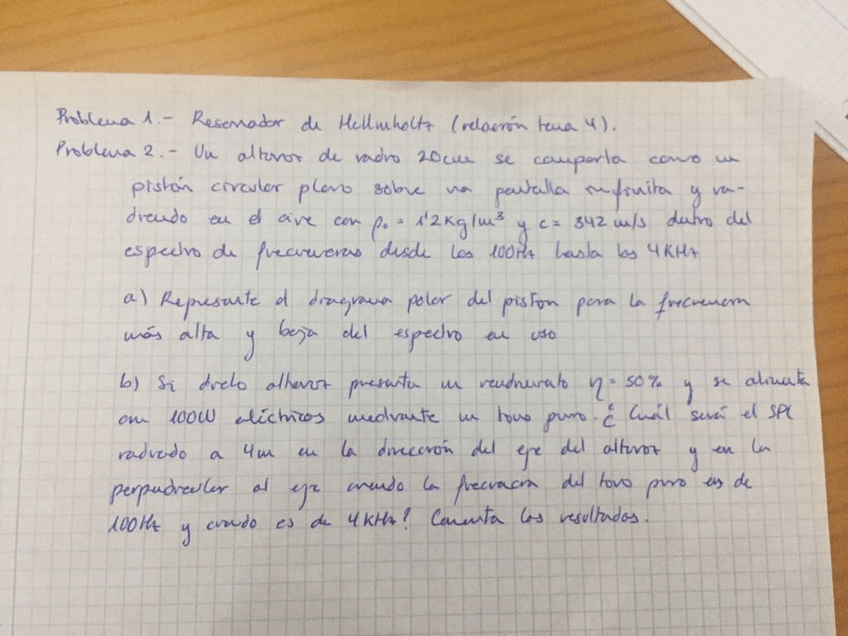 Problema 1.- Resonador de Hellmholtz (relación tema 4).
Problema 2.- Un altavoz de radio 20cm se comporta como un
pistón circular plano sobre una pantalla infinita y ra-
diando en el aire con ρ₀ = 1'2 Kg/m³ y c = 342 m/s dentro del
espectro de frecuencias desde los 100Hz hasta los 4KHz
a) Represente el diagrama polar del pistón para la frecuencia
más alta y baja del espectro en uso
b) Si dicho altavoz presenta un rendimiento η = 50% y se alimenta
con 100W eléctricos mediante un tono puro. ¿Cuál será el SPL
radiado a 4m en la dirección del eje del altavoz y en la
perpendicular al eje cuando la frecuencia del tono puro es de
100Hz y cuando es de 4KHz? Comenta los resultados.